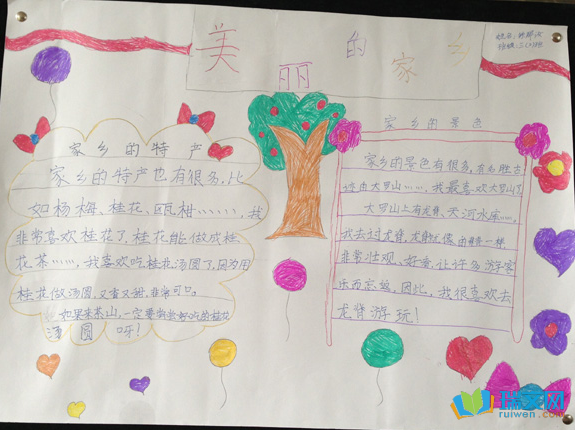 美丽的家乡
姓名:
班级:
家乡的特产
家乡的特产也有很多,比
如杨梅、桂花、瓯柑……,我
非常喜欢桂花了,桂花能做成桂
花茶……,我喜欢吃桂花汤圆了,因为用
桂花做汤圆,又香又甜,非常可口。
如果来茶山,一定要尝尝好吃的桂花
汤圆呀!
家乡的景色
家乡的景色有很多,有名胜古
迹由大罗山……,我最喜欢大罗山了
大罗山上有龙脊、天河水库……,
我去过龙脊,龙脊就像由脊一样
非常壮观、好爱,让许多游客
乐而忘返,因此,我很喜欢去
龙脊游玩!
瑞文网
ruiwen.com